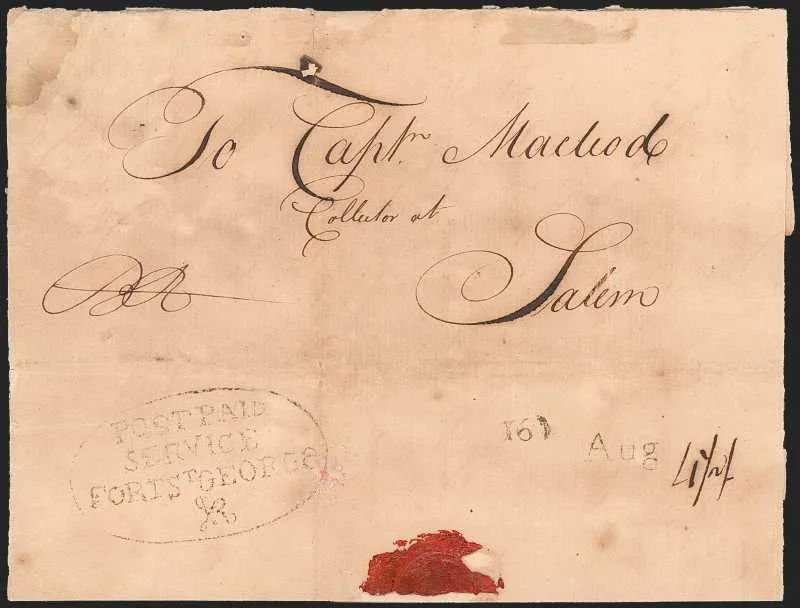 To Captn. Macleod
Collector at
Salem
POST PAID
SERVICE
FORT ST GEORGE
16
Aug